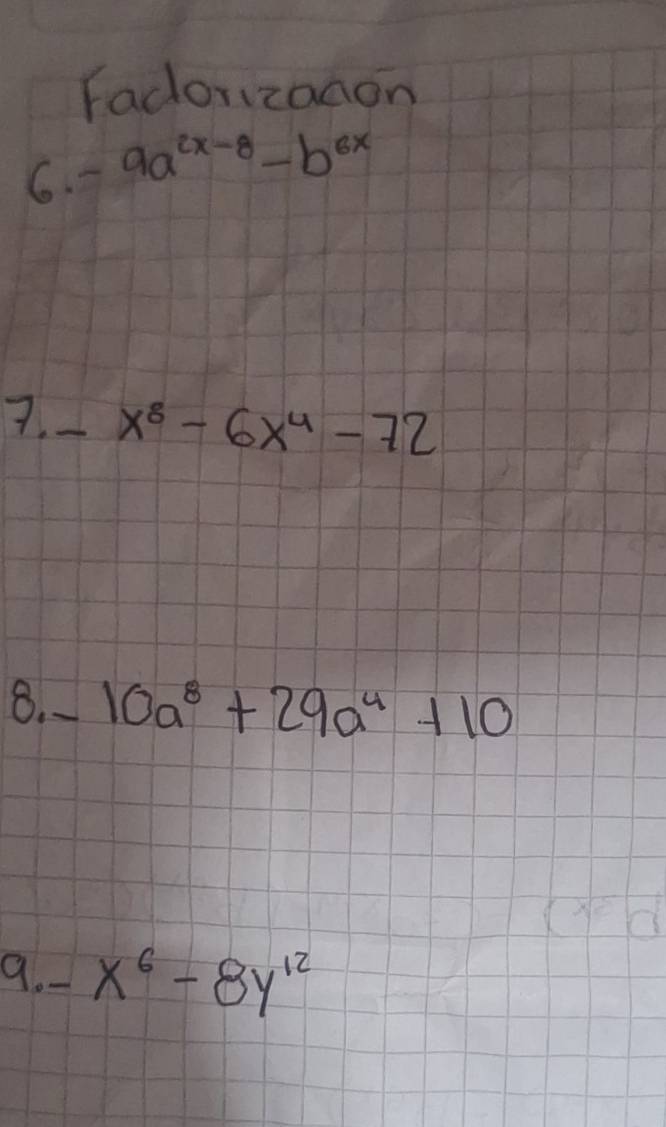 Factorización
6.- 9a^{2x-8} - b^{6x}
7.- x⁸ - 6x⁴ - 72
8.- 10a⁸ + 29a⁴ + 10
9.- x⁶ - 8y¹²